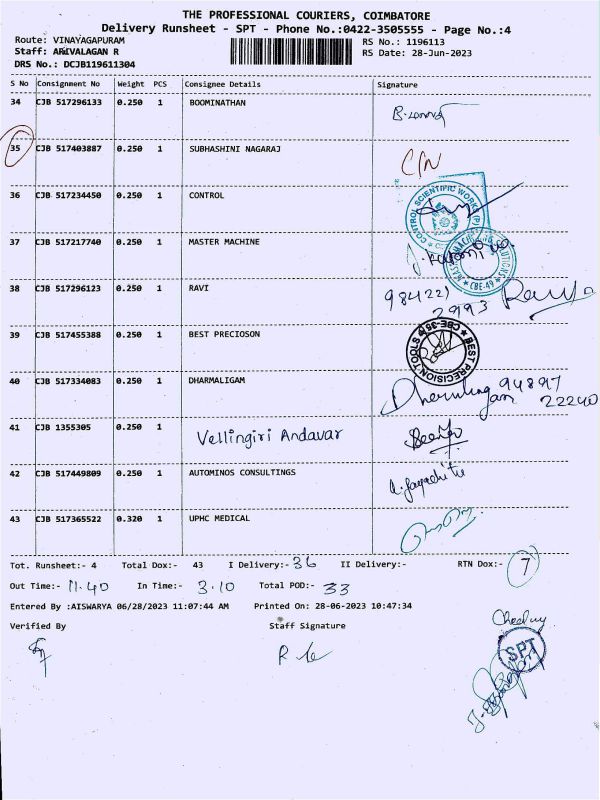 THE PROFESSIONAL COURIERS, COIMBATORE
Delivery Runsheet - SPT - Phone No.:0422-3505555 - Page No.:4
Route: VINAYAGAPURAM RS No.: 1196113
Staff: ARIVALAGAN R RS Date: 28-Jun-2023
DRS No.: DCJB119611304
S No Consignment No Weight PCS Consignee Details Signature
34 CJB 517296133 0.250 1 BOOMINATHAN
35 CJB 517403887 0.250 1 SUBHASHINI NAGARAJ
36 CJB 517234450 0.250 1 CONTROL
CONTROL SCIENTIFIC WORKS (P)
37 CJB 517217740 0.250 1 MASTER MACHINE
CBE-49
38 CJB 517296123 0.250 1 RAVI
39 CJB 517455388 0.250 1 BEST PRECIOSON
BEST PRECISION TOOLS CBE-35
40 CJB 517334083 0.250 1 DHARMALIGAM
94897
22240
41 CJB 1355305 0.250 1 Vellingiri Andavar
42 CJB 517449809 0.250 1 AUTOMINOS CONSULTINGS
43 CJB 517365522 0.320 1 UPHC MEDICAL
Tot. Runsheet:- 4 Total Dox:- 43 I Delivery:- 36 II Delivery:- RTN Dox:- 7
Out Time:- 11.40 In Time:- 3.10 Total POD:- 33
Entered By :AISWARYA 06/28/2023 11:07:44 AM Printed On: 28-06-2023 10:47:34
Verified By Staff Signature
SPT